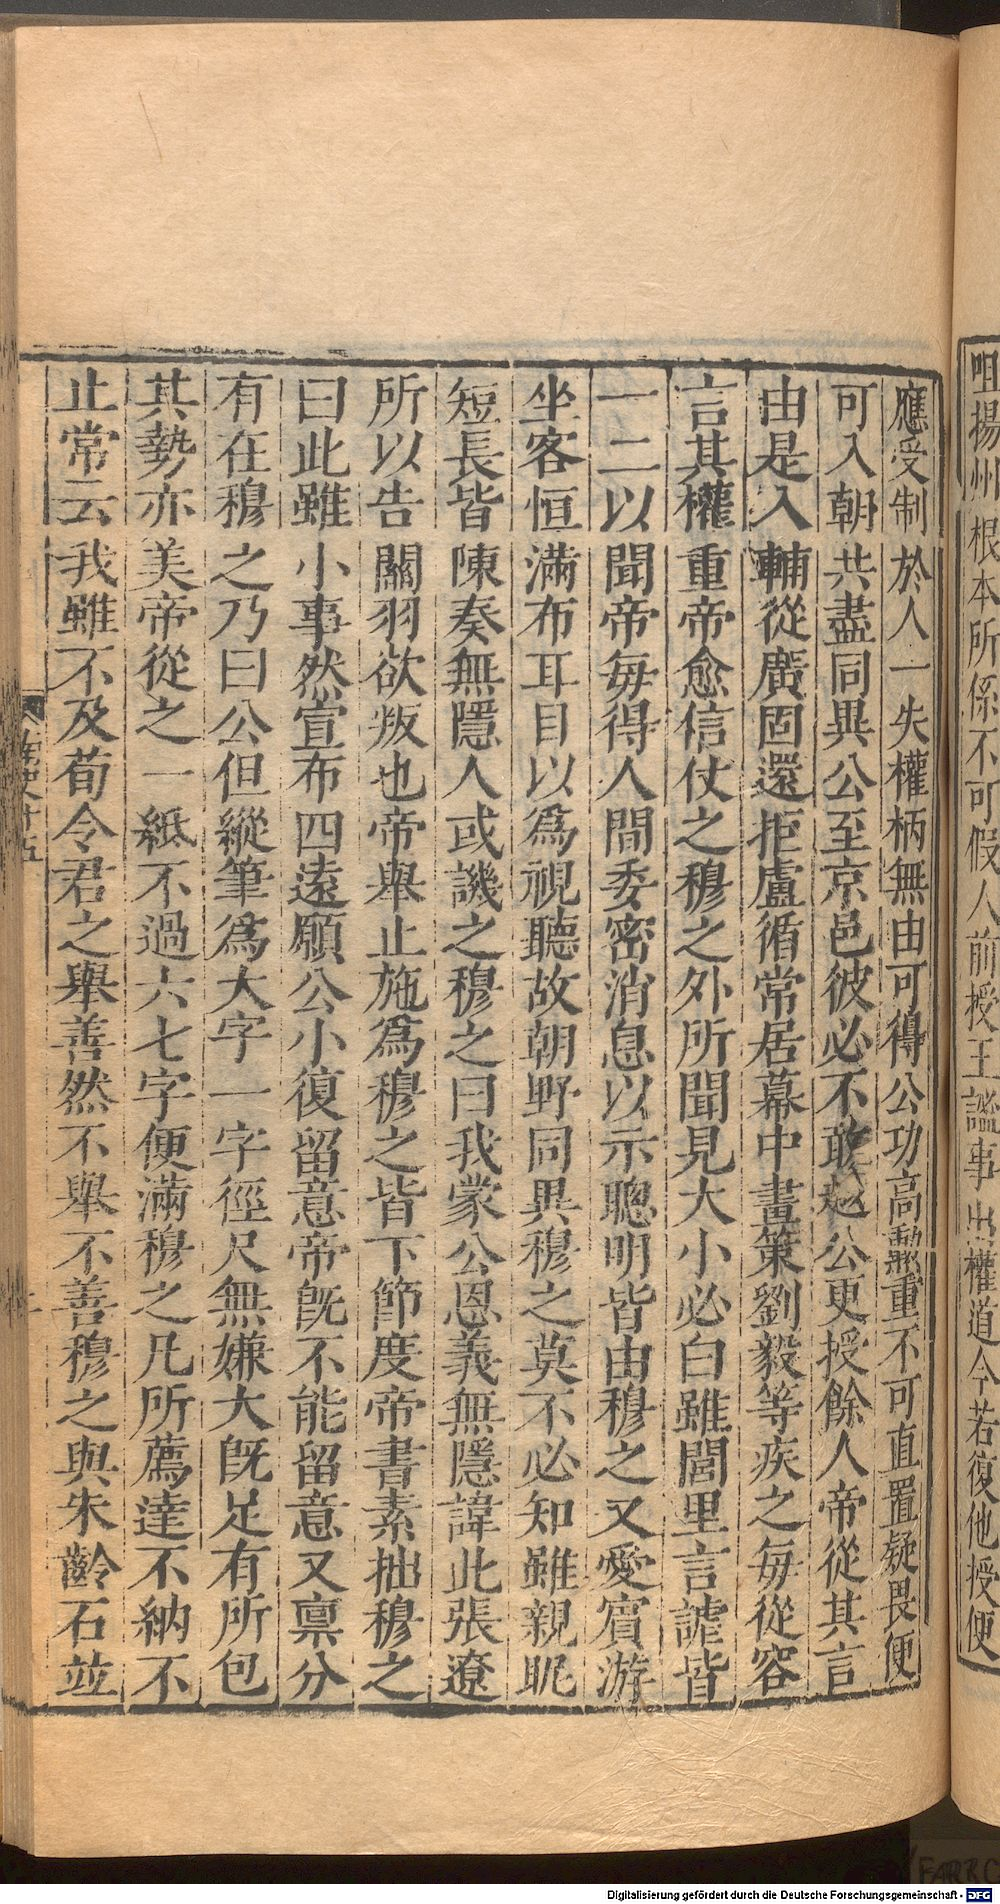 咀揚州根本所係不可假人前授王謐事出權道今若復他授便
應受制於人一失權柄無由可得公功高勳重不可直置疑畏便
可入朝共盡同異公至京邑彼必不敢越公更授餘人帝從其言
由是入輔從廣固還拒盧循常居幕中畫策劉毅等疾之每從容
言其權重帝愈信仗之穆之外所聞見大小必白雖閭里言謔皆
一二以聞帝每得人間委密消息以示聰明皆由穆之又愛賓游
坐客恒滿布耳目以爲視聽故朝野同異穆之莫不必知雖親昵
短長皆陳奏無隱人或譏之穆之曰我蒙公恩義無隱諱此張遼
所以告關羽欲叛也帝舉止施爲穆之皆下節度帝書素拙穆之
曰此雖小事然宣布四遠願公小復留意帝旣不能留意又稟分
有在穆之乃曰公但縱筆爲大字一字徑尺無嫌大旣足有所包
其勢亦美帝從之一紙不過六七字便滿穆之凡所薦達不納不
止常云我雖不及荀令君之舉善然不舉不善穆之與朱齡石竝
南史十五
Digitalisierung gefördert durch die Deutsche Forschungsgemeinschaft - DFG